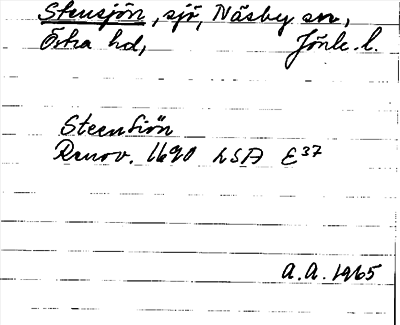 Stensjön, sjö, Näsby sn,
Östra hd, Jönk. l.
Steensiön
Renov. 1690 LSA E37
A.A. 1965